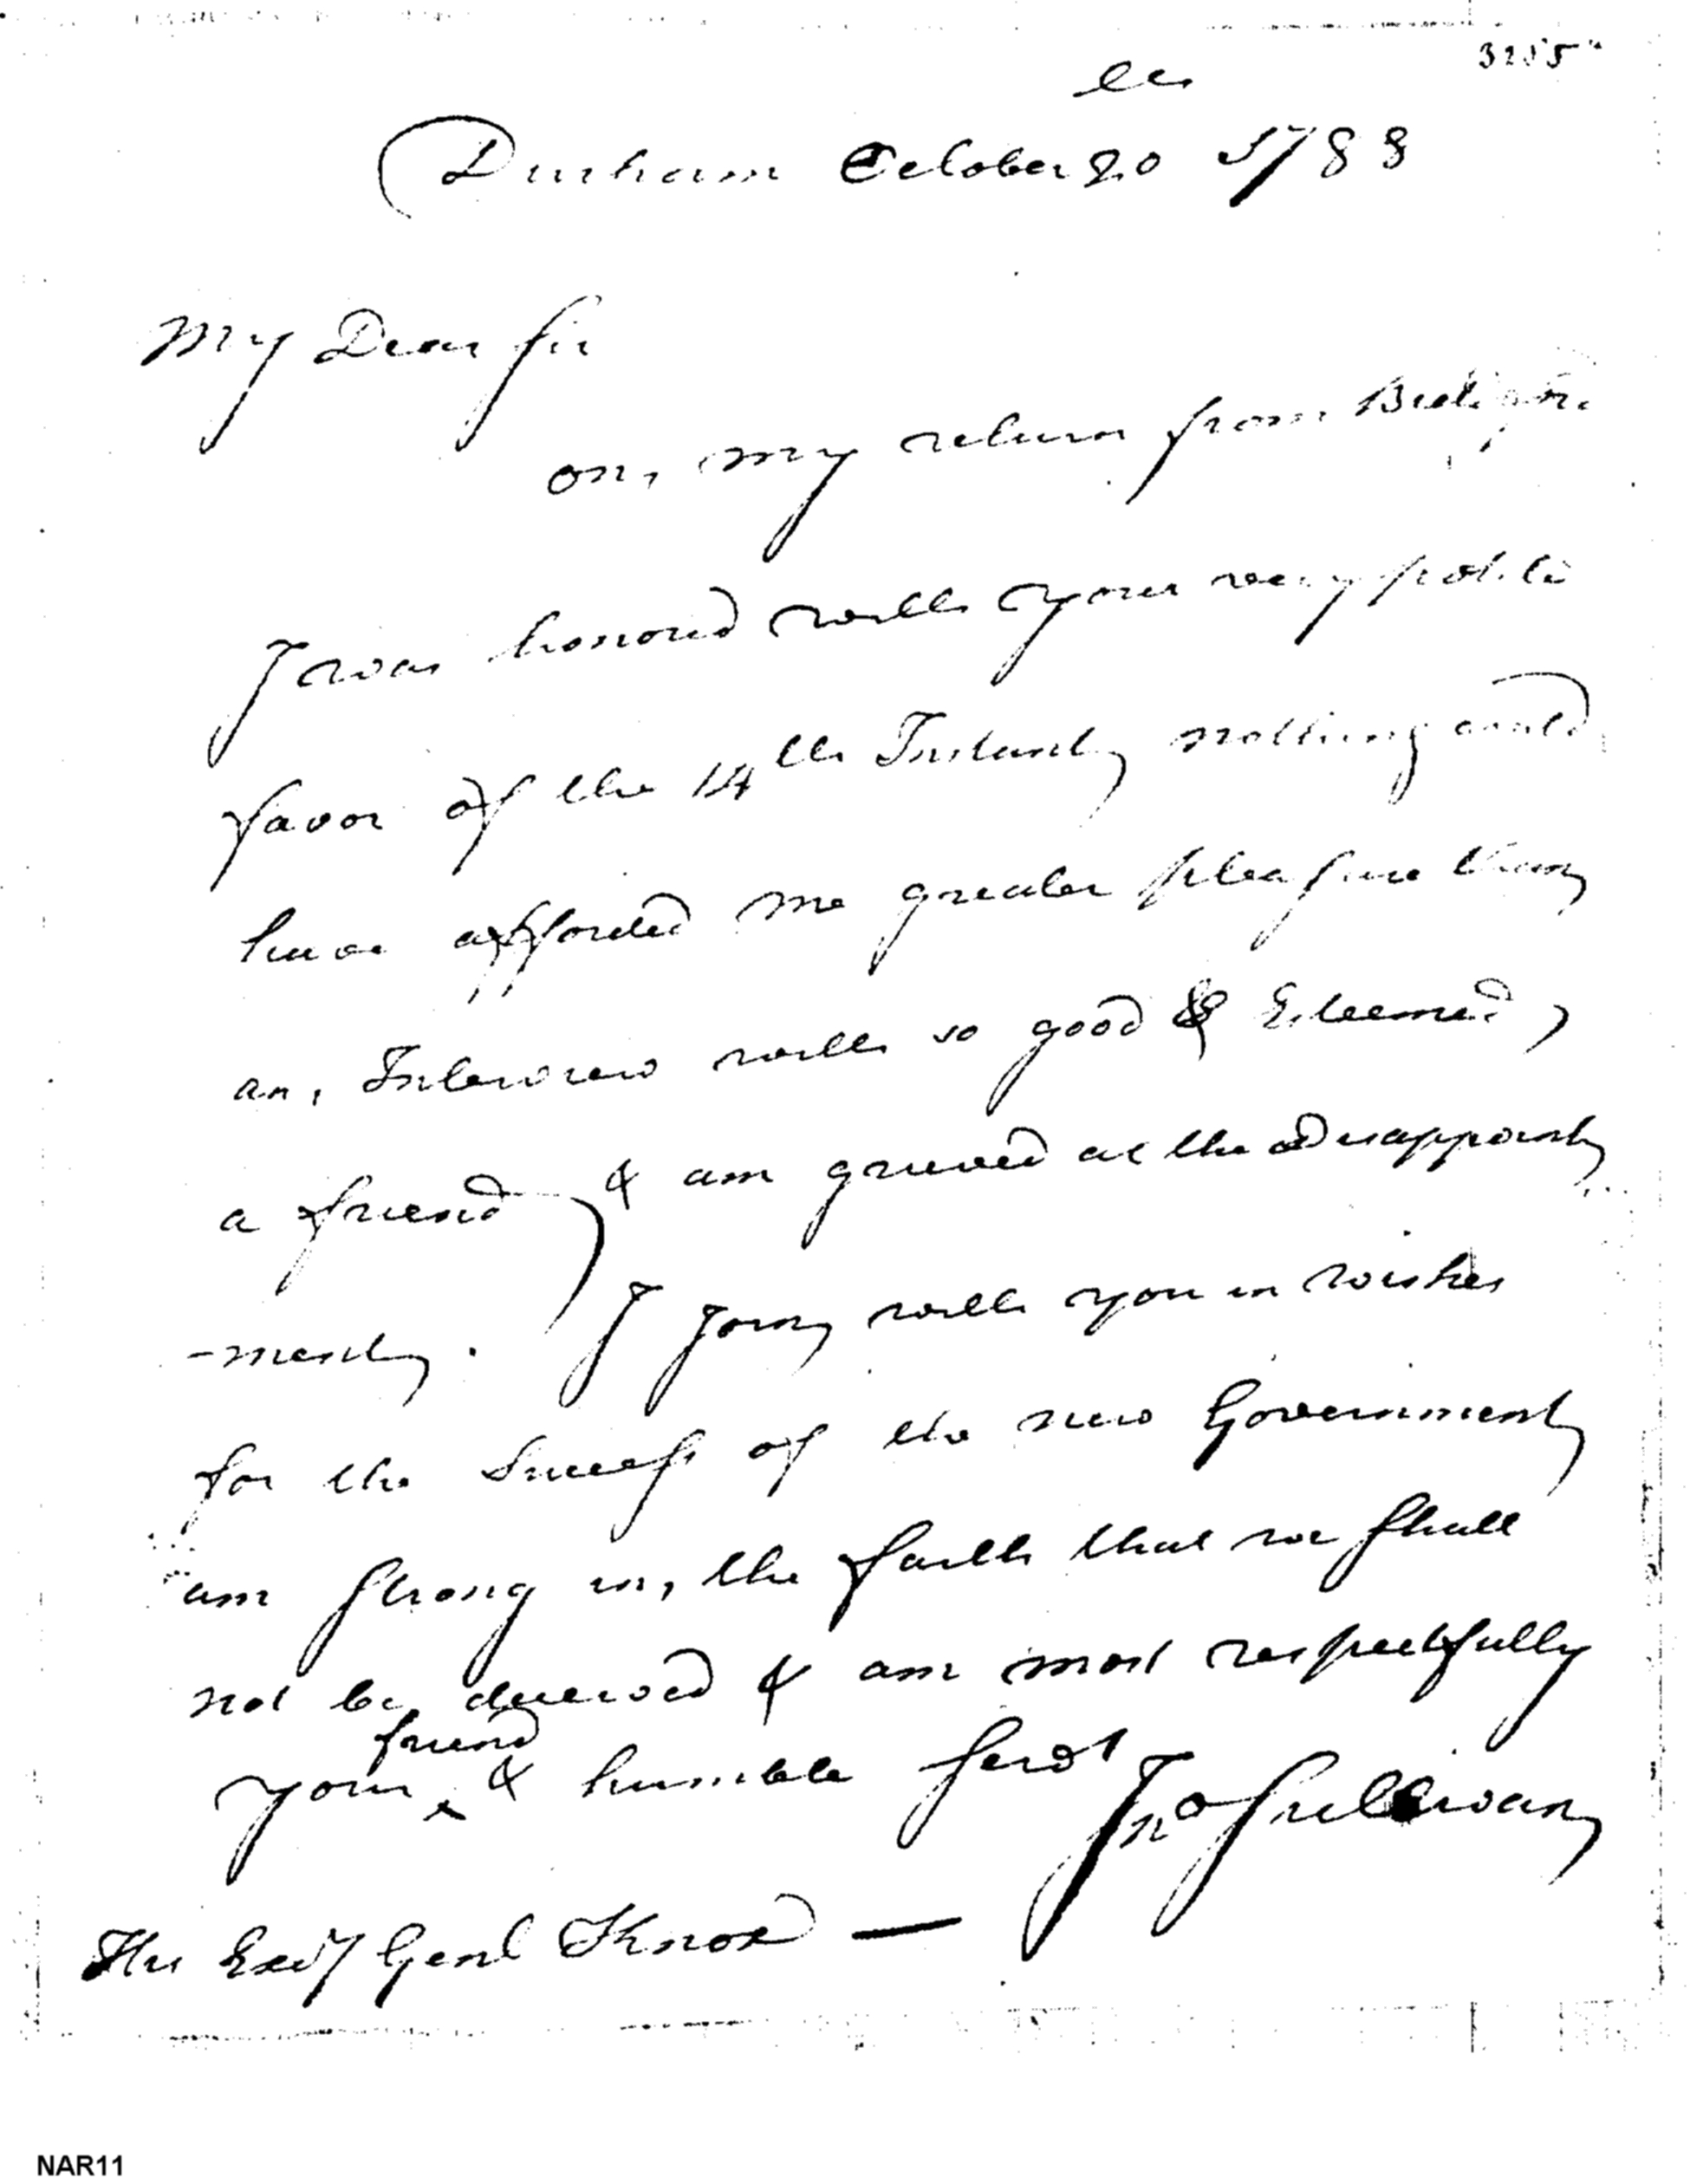 th
Durham October 20 1788
My Dear Sir
on my return from
I was honored with your very polite
favor of the 14th Instant, nothing could
have afforded me greater pleasure than
an Interview with so good & Esteemed,
a friend & am grieved at the Disappoint
-ment. I Join with you in wishes
for the Success of the new Government
am Strong in the faith that we Shall
not be deceived & am most respectfully
friend
your ^ & humble Servt
Jno Sullivan
Genl Knox —
NAR11